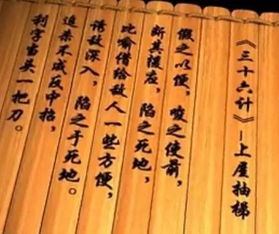 《三十六计》—上屋抽梯
假之以便，唆之使前，
断其援应，陷之死地，
比喻借给敌人一些方便，
诱敌深入，陷之于死地。
追杀不成反中招，
利字当头一把刀。